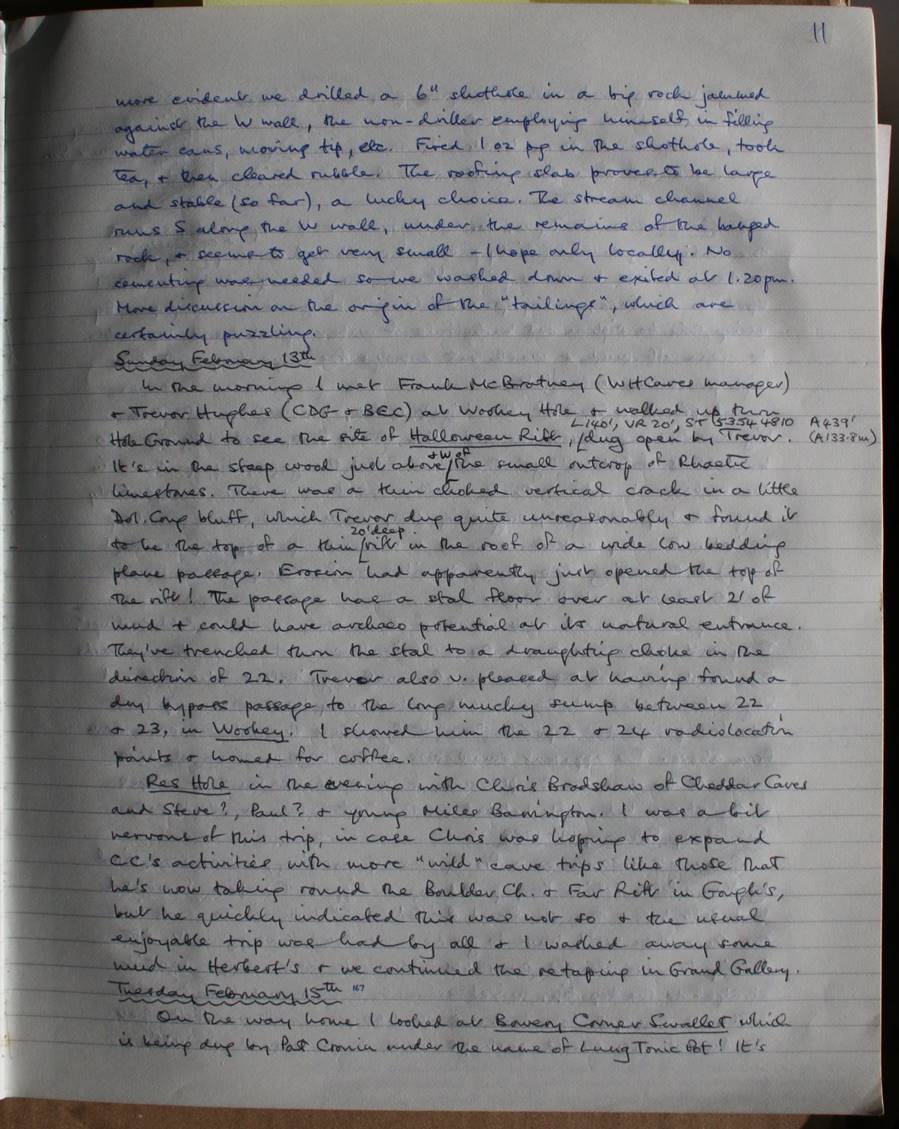 11
more evident we drilled a 6" shothole in a big rock jammed
against the W wall, the non-driller employing himself in filling
water cans, moving tip, etc. Fired 1 oz pg in the shothole, took
tea, + then cleared rubble. The roofing slab proves to be large
and stable (so far), a lucky choice. The stream channel
runs S along the W wall, under the remains of the banged
rock, + seems to get very small - I hope only locally. No
cementing was needed so we washed down + exited at 1.20pm.
More discussion on the origin of the "tailings", which are
certainly puzzling.
Sunday February 13th
In the morning I met Frank McBratney (WHCaves manager)
+ Trevor Hughes (CDG + BEC) at Wookey Hole + walked up thru
L140', VR 20', ST 5354 4810 A439'
Hole Ground to see the site of Halloween Rift, dug open by Trevor. (A133.8m)
It's in the steep wood just above + W of the small outcrop of Rhaetic
limestones. There was a thin choked vertical crack in a little
Dol. Cong bluff, which Trevor dug quite unreasonably + found it
to be the top of a thin 20' deep rift in the roof of a wide low bedding
plane passage. Erosion had apparently just opened the top of
the rift! The passage has a stal floor over at least 2' of
mud + could have archaeo potential at its natural entrance.
They've trenched thru the stal to a draughting choke in the
direction of 22. Trevor also v. pleased at having found a
dry bypass passage to the long mucky sump between 22
+ 23, in Wookey. I showed him the 22 + 24 radiolocation
points + homed for coffee.
Res Hole in the evening with Chris Bradshaw of Cheddar Caves
and Steve?, Paul? + young Miles Barrington. I was a bit
nervous of this trip, in case Chris was hoping to expand
CC's activities with more "wild" cave trips like those that
he's now taking round the Boulder Ch. + Far Rift in Gough's,
but he quickly indicated this was not so + the usual
enjoyable trip was had by all + I washed away some
mud in Herbert's + we continued the retaping in Grand Gallery.
Tuesday February 15th 167
On the way home I looked at Bowery Corner Swallet which
is being dug by Pat Cronin under the name of Lung Tonic Pot! It's